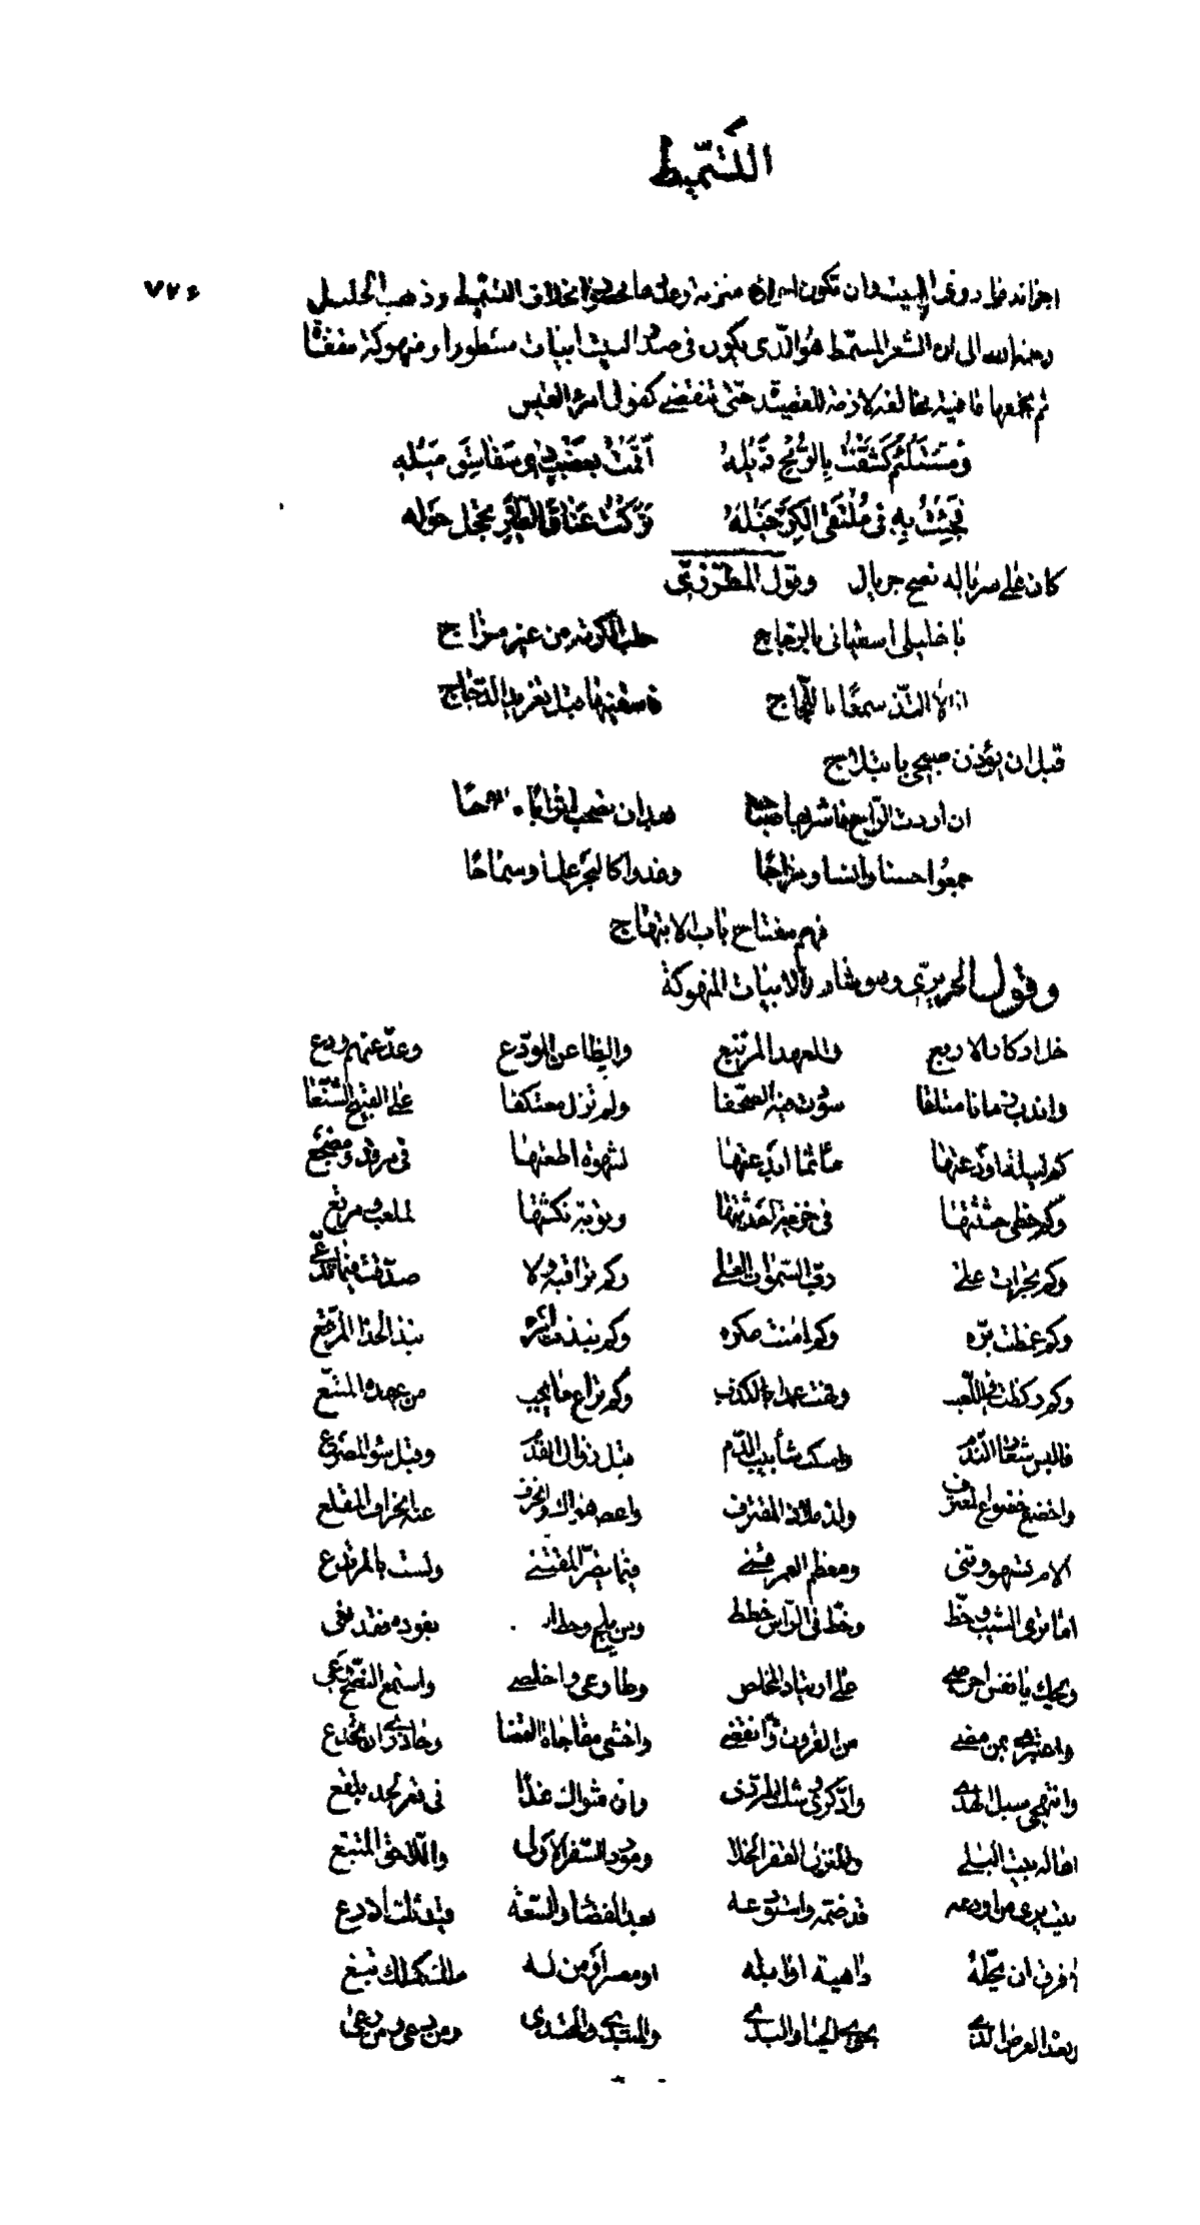 التسميط
٧٧٤
رحمه الله الى ان الشعر المسمط هو الذى يكون فى صدر البيت ابيات مشطورة او منهوكة مقفاة
ثم يجمعها قافية مخالفة لازمة للقصيدة حتى تنقضى كقول امرؤ القيس
ومستلئم كشفت بالرمح ذيله اقمت بعضب ذى سفاسق ميله
فجئت به فى ملتقى الكر خيله تركت عتاق الطير تحجل حوله
كان على سرباله نضح جريال وقول المطرزى
يا خليلى اسقيانى بالزجاج حلب الكرمة من غير مزاج
انا لا التذ سمعا باللجاج فاسقنيها قبل تغريد الدجاج
قبل ان يؤذن صبحى بابتلاج
ان اردت الراح فاشربها صباحا بعد ان تصحب اترابا
جمعوا حسنا وانسا ومزاحا وغدوا كالبحر علما وسماحا
فهم مفتاح باب الابتهاج
وقول الحريرى وصدر بالابيات المنهوكة
خل ادكار الاربع والمعهد المرتبع والظاعن المودع وعد عنهم ودع
واندب زمانا سلفا سودت فيه الصحفا ولم تزل معتكفا على القبيح الشنعا
كم ليلة اودعتها مآثما ابدعتها لشهوة اطعتها فى مرقد ومضجع
وكم خطى حثثتها فى خزية احدثتها وتوبة نكثتها لملعب ومرتع
وكم تجرات على رب السموات العلى وكم تراقبه ولا صدقت فيما تدعى
وكم غمطت بره وكم امنت مكره وكم نبذت امره نبذ الحذا المرقع
وكم ركضت فى اللعب وفهت عمدا بالكذب وكم تراع ما يجب من عهده المتبع
فالبس شعار الندم واسكب شآبيب الدم قبل زوال القدم وقبل سوء المصرع
واخضع خضوع المعترف ولذ ملاذ المقترف واعص هواك وانحرف عنه انحراف المقلع
الام تسهو وتنى ومعظم العمر فنى فيما يضر المقتنى ولست بالمرتدع
اما ترى الشيب وخط وخط فى الراس خطط ومن يلح وخط بفوده فقد نعى
ويحك يا نفس احرصى على ارتياد المخلص وطاوعى واخلصى واستمع النصح وعى
واعتبرى بمن مضى من القرون وانقضى واخشى مفاجاة القضا وحاذرى ان تخدعى
وانتهجى سبل الهدى وادكرى وشك الردى وان مثواك غدا فى قعر لحد بلقع
اها له بيت البلى والمنزل القفر الخلا ومورد السفر الاولى واللاحق المتبع
بيت يرى من اودعه قد ضمه واستودعه بعد الفضاء والسعة قيد ثلث اذرع
لا فرق ان يحله داهية او ابله او معسر او من له ملك كملك تبع
وبعده العرض الذى يحوى الحيى والبذى والمبتدى والمحتذى ومن رعى ومن رعى